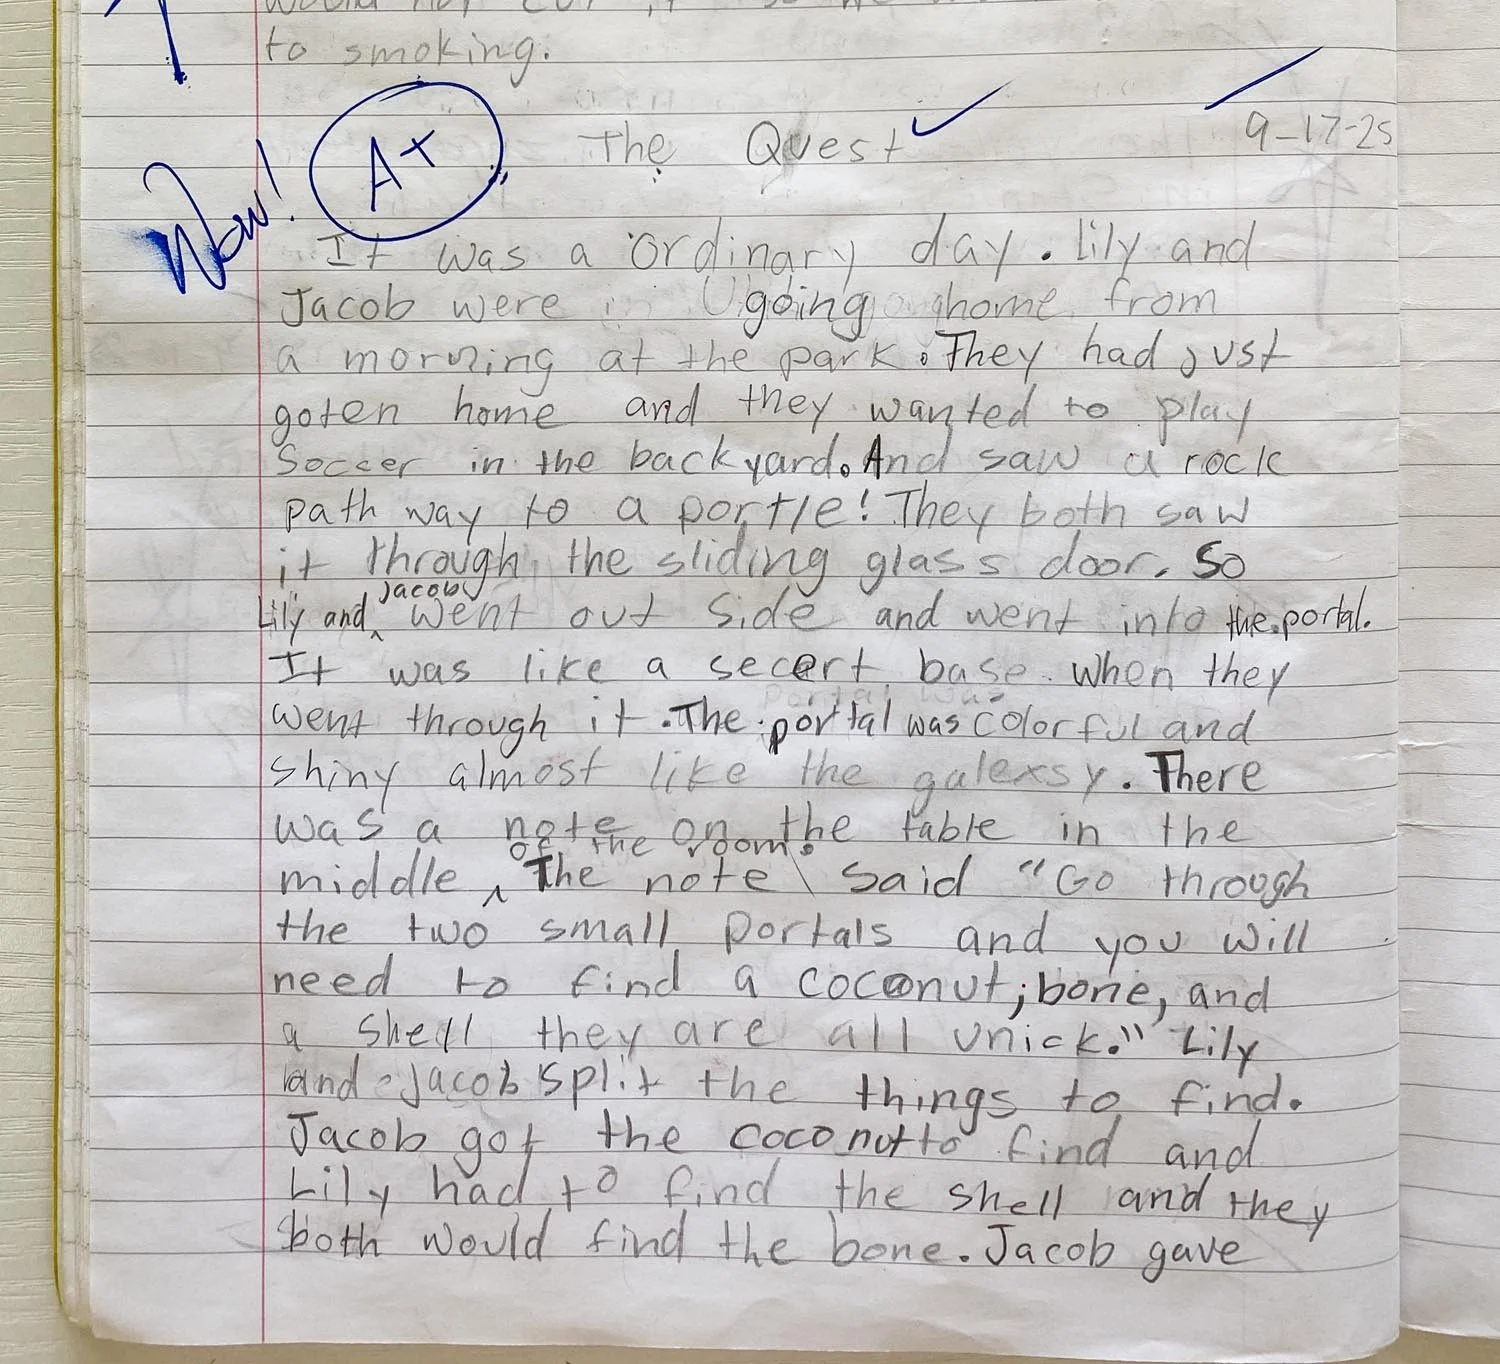 to smoking.
Wow! A+ The Quest 9-17-25
It was a ordinary day. Lily and
Jacob were going home from
a morning at the park. They had just
goten home and they wanted to play
Soccer in the backyard. And saw a rock
path way to a portle! They both saw
it through the sliding glass door. So
Lily and ^ Jacob went out side and went into the portal.
It was like a secert base. When they
went through it. The portal was colorful and
shiny almost like the galexsy. There
was a note on the table in the
middle ^ of the room. The note said "Go through
the two small portals and you will
need to find a coconut, bone, and
a shell they are all unick." Lily
and Jacob split the things to find.
Jacob got the coconut to find and
Lily had to find the shell and they
both would find the bone. Jacob gave